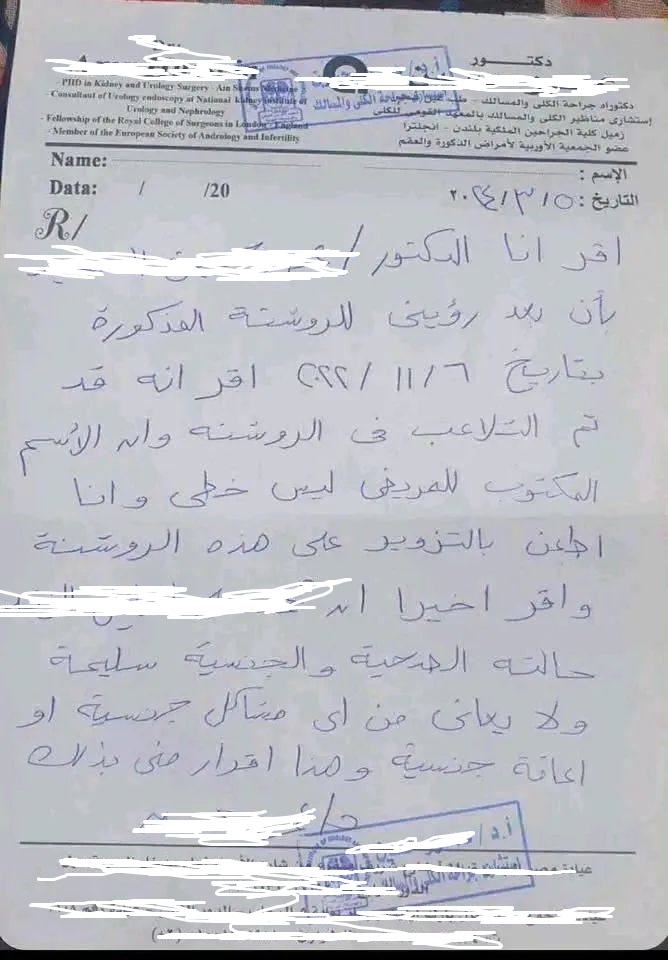 دكتـــور
PHD in Kidney and Urology Surgery - Ain Shams
دكتوراه جراحة الكلى والمسالك - طب عين
- Consultant of Urology endoscopy at National kidney institute of
Urology and Nephrology
إستشارى مناظير الكلى والمسالك بالمعهد القومى للكلى
- Fellowship of the Royal College of Surgeons in London - England
زميل كلية الجراحين الملكية بلندن - انجلترا
- Member of the European Society of Andrology and Infertility
عضو الجمعية الأوربية لأمراض الذكورة والعقم
Name:
الإسم :
Data: / /20
التاريخ : ٢٠٢٤/٣/٥
R/
اقر انا الدكتور /
بأن بعد رؤيتى للروشتة المذكورة
بتاريخ ٦ / ١١ / ٢٠٢٢ اقر انه قد
تم التلاعب فى الروشته وان الأسم
المكتوب للمريض ليس خطى وانا
اطعن بالتزوير على هذه الروشتة
واقر اخيرا ان
حالته الصحية والجنسية سليمة
ولا يعانى من اى مشاكل جنسية او
اعاقة جنسية وهذا اقرار منى بذلك
د/